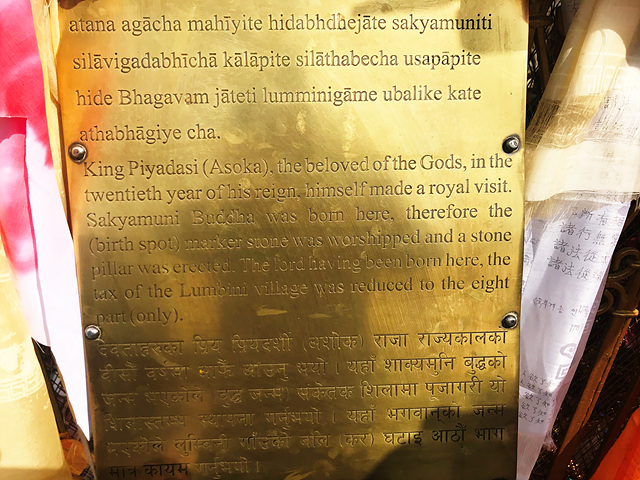 atana agācha mahīyite hidabhdhejāte sakyamuniti
silāvigadabhīchā kālāpite silāthabecha usapāpite
hide Bhagavaṁ jāteti lumminigāme ubalike kate
athabhāgiye cha.
King Piyadasi (Asoka), the beloved of the Gods, in the
twentieth year of his reign, himself made a royal visit.
Sakyamuni Buddha was born here, therefore the
(birth spot) marker stone was worshipped and a stone
pillar was erected. The lord having been born here, the
tax of the Lumbini village was reduced to the eight
part (only).
प्रिय प्रियदर्शी (अशोक) राजा राज्यकालको
आउनु भयो । यहाँ शाक्यमुनि बुद्धको
बुद्ध जन्म) संकेतक शिलामा पूजागरी यो
स्थापना गर्नुभयो । यहाँ भगवान्को जन्म
लुम्बिनी गाउँको बलि (कर) घटाइ आठौं भाग
मात्र कायम गर्नुभयो ।
所有
諸行無
諸法從
諸法從